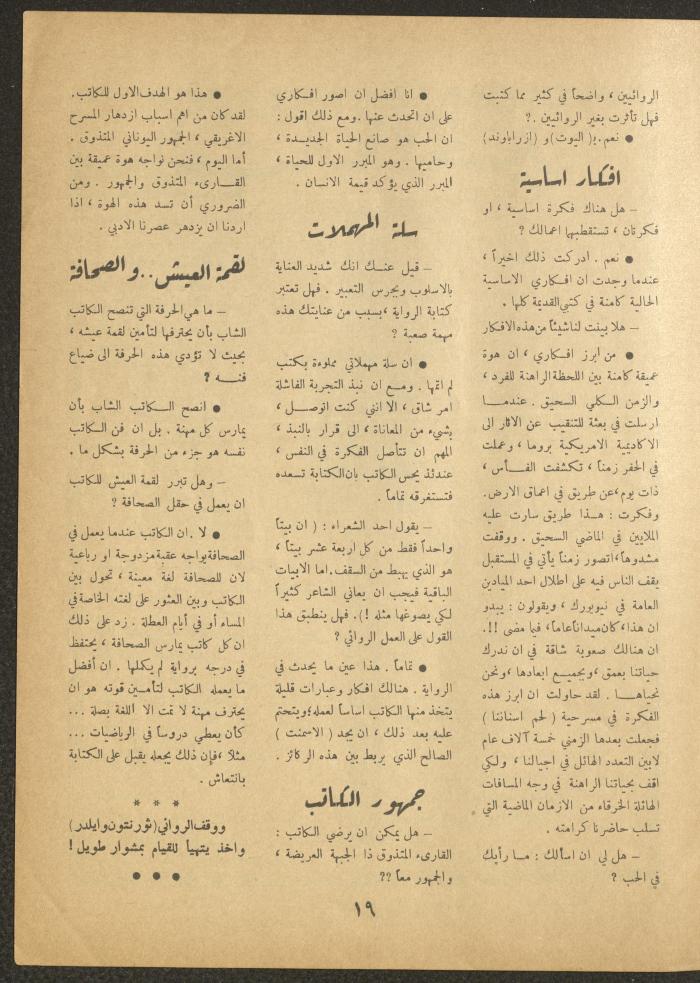 الروائيين ، واضحاً في كثير مما كتبت
فهل تأثرت بغير الروائيين .؟
● نعم. بـ( اليوت) و (ازراباوند)
افكار اساسية
– هل هناك فكرة اساسية ، او
فكرتان ، تستقطبها اعمالك ؟
● نعم . ادركت ذلك اخيراً ،
عندما وجدت ان افكاري الاساسية
الحالية كامنة في كتبي القديمة كلها .
– هلا بينت لنا شيئاً من هذه الافكار
● من ابرز افكاري ، ان هوة
عميقة كامنة بين اللحظة الراهنة للفرد ،
والزمن الكلي السحيق . عندمـــا
ارسلت في بعثة للتنقيب عن الاثار الى
الاكاديمية الامريكية بروما ، وعملت
في الحفر زمناً ، تكشفت الفـــأس ،
ذات يوم ،عن طريق في اعماق الارض.
وفكرت : هــذا طريق سارت عليه
الملايين في الماضي السحيق . ووقفت
مشدوهاً، اتصور زمناً يأتي في المستقبل
يقف الناس فيه على اطلال احد الميادين
العامة في نيويورك ، ويقولون : يبدو
ان هذا ، كان ميداناً عاماً، فيما مضى !!.
ان هنالك صعوبة شاقة في ان ندرك
حياتنا بعمق ،وبجميـع ابعادها ،ونحن
نحياهــــا . لقد حاولت ان ابرز هذه
الفكرة في مسرحية ( لحم اسناننا )
فجعلت بعدها الزمني خمسة آلاف عام
لابين التعدد الهائل في اجيالنا ، ولكي
اقف بحياتنا الراهنة في وجه المسافات
الهائلة الخرقاء من الازمان الماضية التي
تسلب حاضرنا كرامته .
– هل لي ان اسألك : مــا رأيك
في الحب ؟
● انا افضل ان اصور افـكاري
على ان اتحدث عنها .ومع ذلك اقول :
ان الحب هو صانع الحياة الجديــدة ،
وحاميها . وهو المبرر الاول للحياة ،
المبرر الذي يؤكد قيمة الانسان .
سلة المهملات
– قيل عنـــك انك شديد العناية
بالاسلوب وبجرس التعبير . فهل تعتبر
كتابة الرواية ،بسبب من عنايتك هذه
مهمة صعبة ؟
● ان سلة مهملاتي مملوءة بكتب
لم اتمها . ومـع ان نبذ التجربة الفاشلة
امر شاق ، الا انني كنت اتوصــل ،
بشيء من المعاناة ، الى قرار بالنبذ ،
المهم ان تتأصل الفكرة في النفس ،
عندئذ يحس الكاتب بان الكتابة تسعده
فتستغرقه تماماً .
– يقول احد الشعراء : ( ان بيتاً
واحداً فقط من كل اربعة عشر بيتاً ،
هو الذي يهبط من السقف.اما الابيات
الباقية فيجب ان يعاني الشاعر كثيراً
لكي يصوغها مثله !). فهل ينطبق هذا
القول على العمل الروائي ؟
● تماماً . هذا عين ما يحدث في
الرواية . هنالك افكار وعبارات قليلة
يتخذ منها الكاتب اساساً لعمله؛ويتحتم
عليه بعد ذلك ، ان يجد ( الاسمنت )
الصالح الذي يربط بين هذه الركائز .
جمهور الكاتب
– هل يمكن ان يرضي الكاتب :
القارىء المتذوق ذا الجبهة العريضة ،
والجمهور معاً ؟؟
● هذا هو الهدف الاول للكاتب.
لقد كان من اهم اسباب ازدهار المسرح
الاغريقي ، الجمهور اليوناني المتذوق .
أما اليوم ، فنحن نواجه هوة عميقة بين
القـــارىء المتذوق والجمهور . ومن
الضروري أن تسد هذه الهوة ، اذا
اردنا ان يزدهر عصرنا الادبي .
لقمة العيش .. والصحافة
– ما هي الحرفة التي تنصح الكاتب
الشاب بأن يحترفها لتأمين لقمة عيشه ،
بحيث لا تؤدي هذه الحرفة الى ضياع
فنـــه ؟
● انصح الــكاتب الشاب بأن
يمارس كل مهنة . بل ان فن الكاتب
نفسه هو جزء من الحرفة بشكل ما .
– وهل تبرر لقمة العيش للكاتب
ان يعمل في حقل الصحافة ؟
● لا . ان الكاتب عندما يعمل في
الصحافة يواجه عقبة مزدوجة او رباعية
لان للصحافة لغة معينة ، تحول بين
الكاتب وبين العثور على لغته الخاصة في
المساء أو في أيام العطلة . زد على ذلك
ان كل كاتب يمارس الصحافة ، يحتفظ
في درجه برواية لم يكملها . ان أفضل
ما يعمله الكاتب لتأمــين قوته هو ان
يحترف مهنة لا تمت الا اللغة بصلة ...
كأن يعطي دروساً في الرياضيات ...
مثلاً ،فإن ذلك يجعله يقبل على الكتابة
بانتعاش .
* * *
ووقف الروائي (ثورنتون وايلدر)
واخذ يتهيأ للقيام بمشوار طويل !
● ● ●
١٩